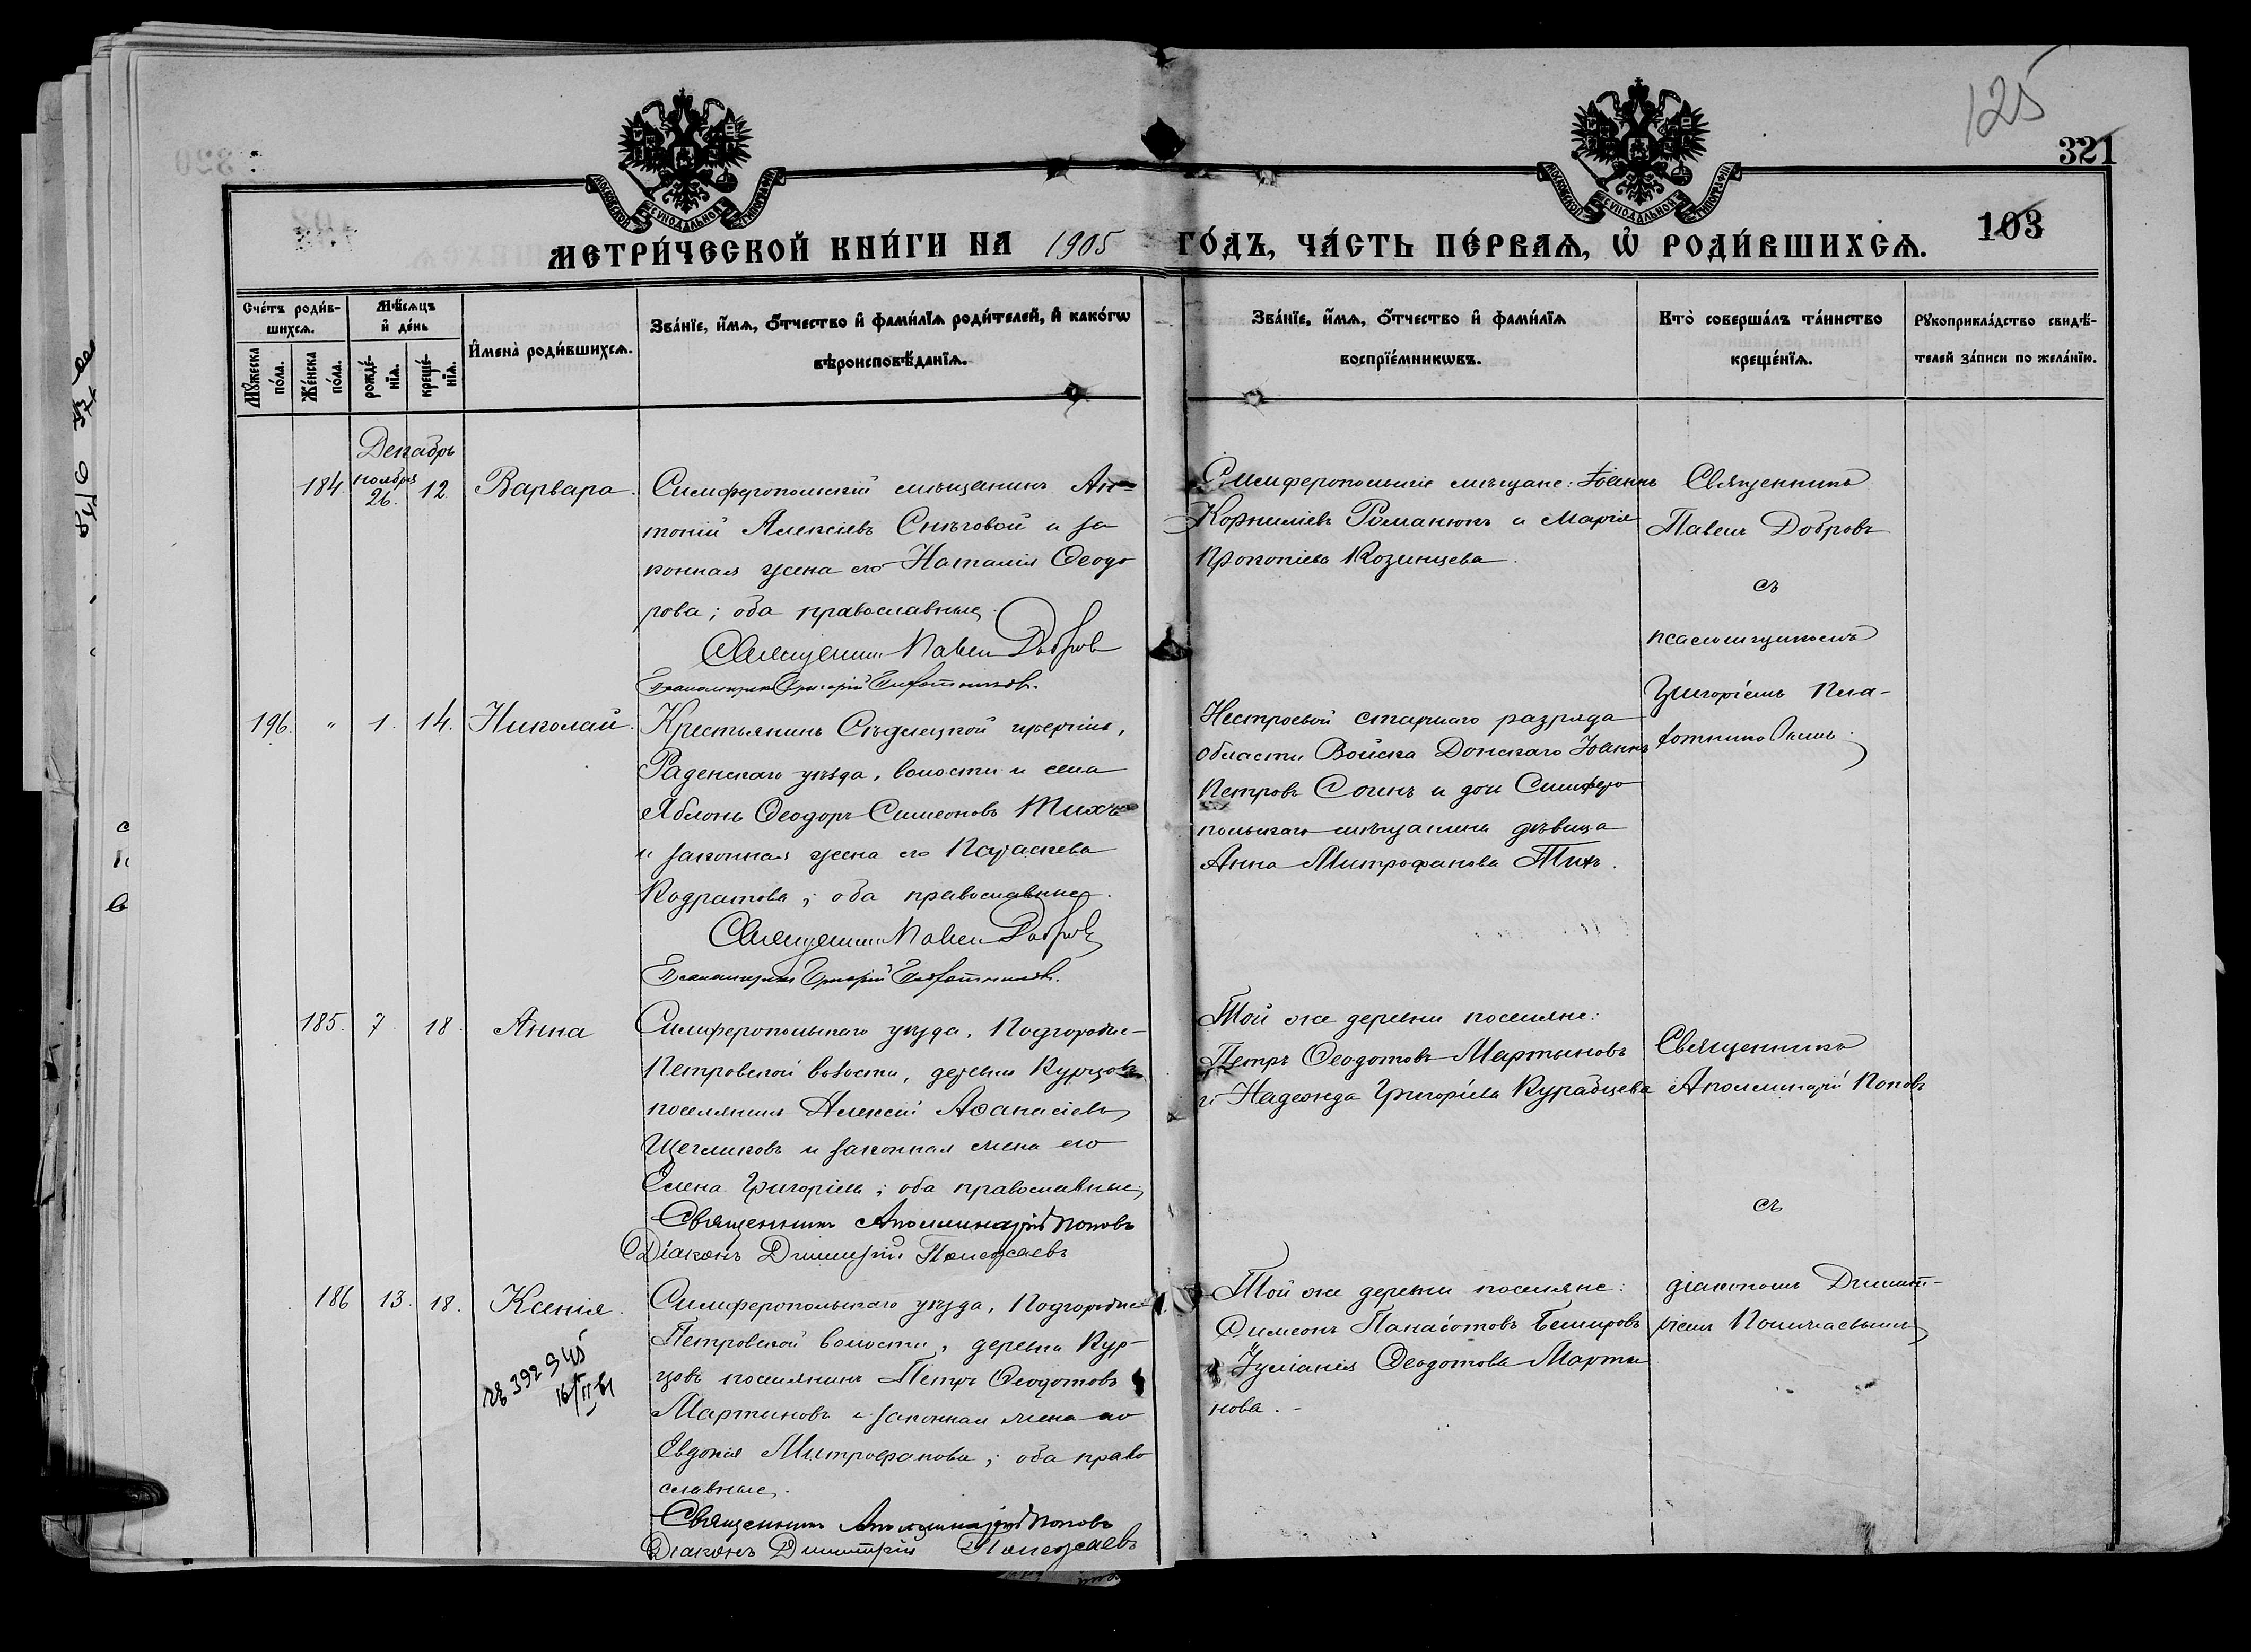 125
321
103
МОСКОВСКОЙ СѴНОДАЛЬНОЙ ТИПОГРАФІИ
МОСКОВСКОЙ СѴНОДАЛЬНОЙ ТИПОГРАФІИ
МЕТРИ́ЧЕСКОЙ КНИ́ГИ НА 1905 ГО́ДЪ, ЧА́СТЬ ПЕ́РВАѦ, Ѡ҆ РОДИ́ВШИХСѦ.
Сче́тъ роди́в-
шихсѧ.
Мꙋ́жеска
по́ла.
Же́нска
по́ла.
Мѣ́сѧцъ
и҆ де́нь
рожде́-
нїѧ.
креще́-
нїѧ.
И҆мена̀ роди́вшихсѧ.
Зва́нїе, и҆́мѧ, ѻ҆́тчество и҆ фами́лїѧ роди́телей, и҆ како́гѡ
вѣроисповѣ́данїѧ.
Зва́нїе, и҆́мѧ, ѻ҆́тчество и҆ фами́лїѧ
воспрїе́мникѡвъ.
Кто̀ соверша́лъ та́инство
креще́нїѧ.
Рꙋкоприкла́дство свидѣ́-
телей за́писи по жела́нїю.
Декабрь
184. ноября 26. 12. Варвара.
Симферопольскій мѣщанинъ Ан-
тоній Алексіевъ Снѣговой и за
конная жена его Наталія Ѳеодо
рова; оба православные.
Священникъ Павел Добров
Псаломщикъ Григорій Плотников.
Симферопольскіе мѣщане: Іоаннъ
Корниліевъ Романюкъ и Марія
Прокопіева Козинцева.
Священникъ
Павелъ Добровъ
съ
псаломщикомъ
Григоріемъ
196. " 1. 14. Николай.
Крестьянинъ Сѣдлецкой губерніи,
Раденскаго уѣзда, волости и села
Яблонь Ѳеодоръ Симеоновъ Тихъ
и законная жена его Параскева
Кодратова; оба православные.
Священникъ Павел Добров
Псаломщикъ Григорій
Нестроевой старшаго разряда
области Войска Донскаго Іоаннъ
Петровъ Сочнъ и дочь Симферо
польскаго мѣщанина дѣвица
Анна Митрофанова Тихъ.
185. 7. 18. Анна
Симферопольскаго уѣзда, Подгородне-
Петровской волости, деревни Курцовъ
поселянинъ Алексій Аѳанасіевъ
Щегликовъ и законная жена его
Елена Григоріева; оба православные.
Священникъ Аполлинарій Поповъ
Діаконъ Димитрій Полежаевъ
Той же деревни поселяне:
Петръ Ѳеодотовъ Мартыновъ
и Надежда Григоріева Курабцева
Священникъ
Аполлинарій Поповъ
съ
діакономъ Димит-
ріемъ Полежаевымъ
186 13. 18. Ксенія.
Симферопольскаго уѣзда, Подгородне-
Петровской волости, деревни Кур-
цовъ поселянинъ Петръ Ѳеодотовъ
Мартиновъ и законная жена его
Евдокія Митрофанова; оба право
славные.
Священникъ Аполлинарій Поповъ
Діаконъ Димитрій Полежаевъ
Той же деревни поселяне:
Симеонъ Панаіотовъ Бешировъ
и Іуліанія Ѳеодотова Марты
нова.